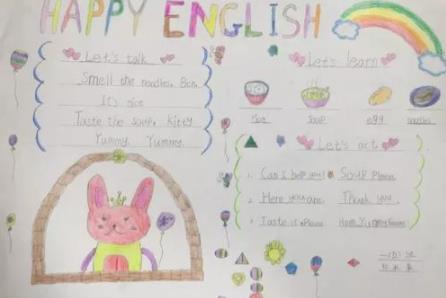 HAPPY ENGLISH
Let's talk
Smell the noodles, Ben.
It's nice
Taste the soup, Kitty
Yummy, Yummy.
Let's learn
rice soup egg noodles
Let's act
1. Can I help you? Soup Please
2. Here you are. Thank you.
3. Taste it Please Hmm Yummy